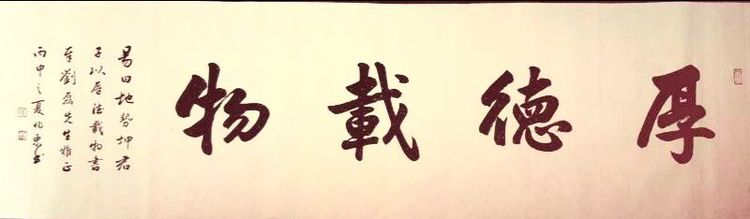 厚德載物
易曰地势坤君
子以厚德載物書
奉劉磊先生雅正
丙申之夏 书